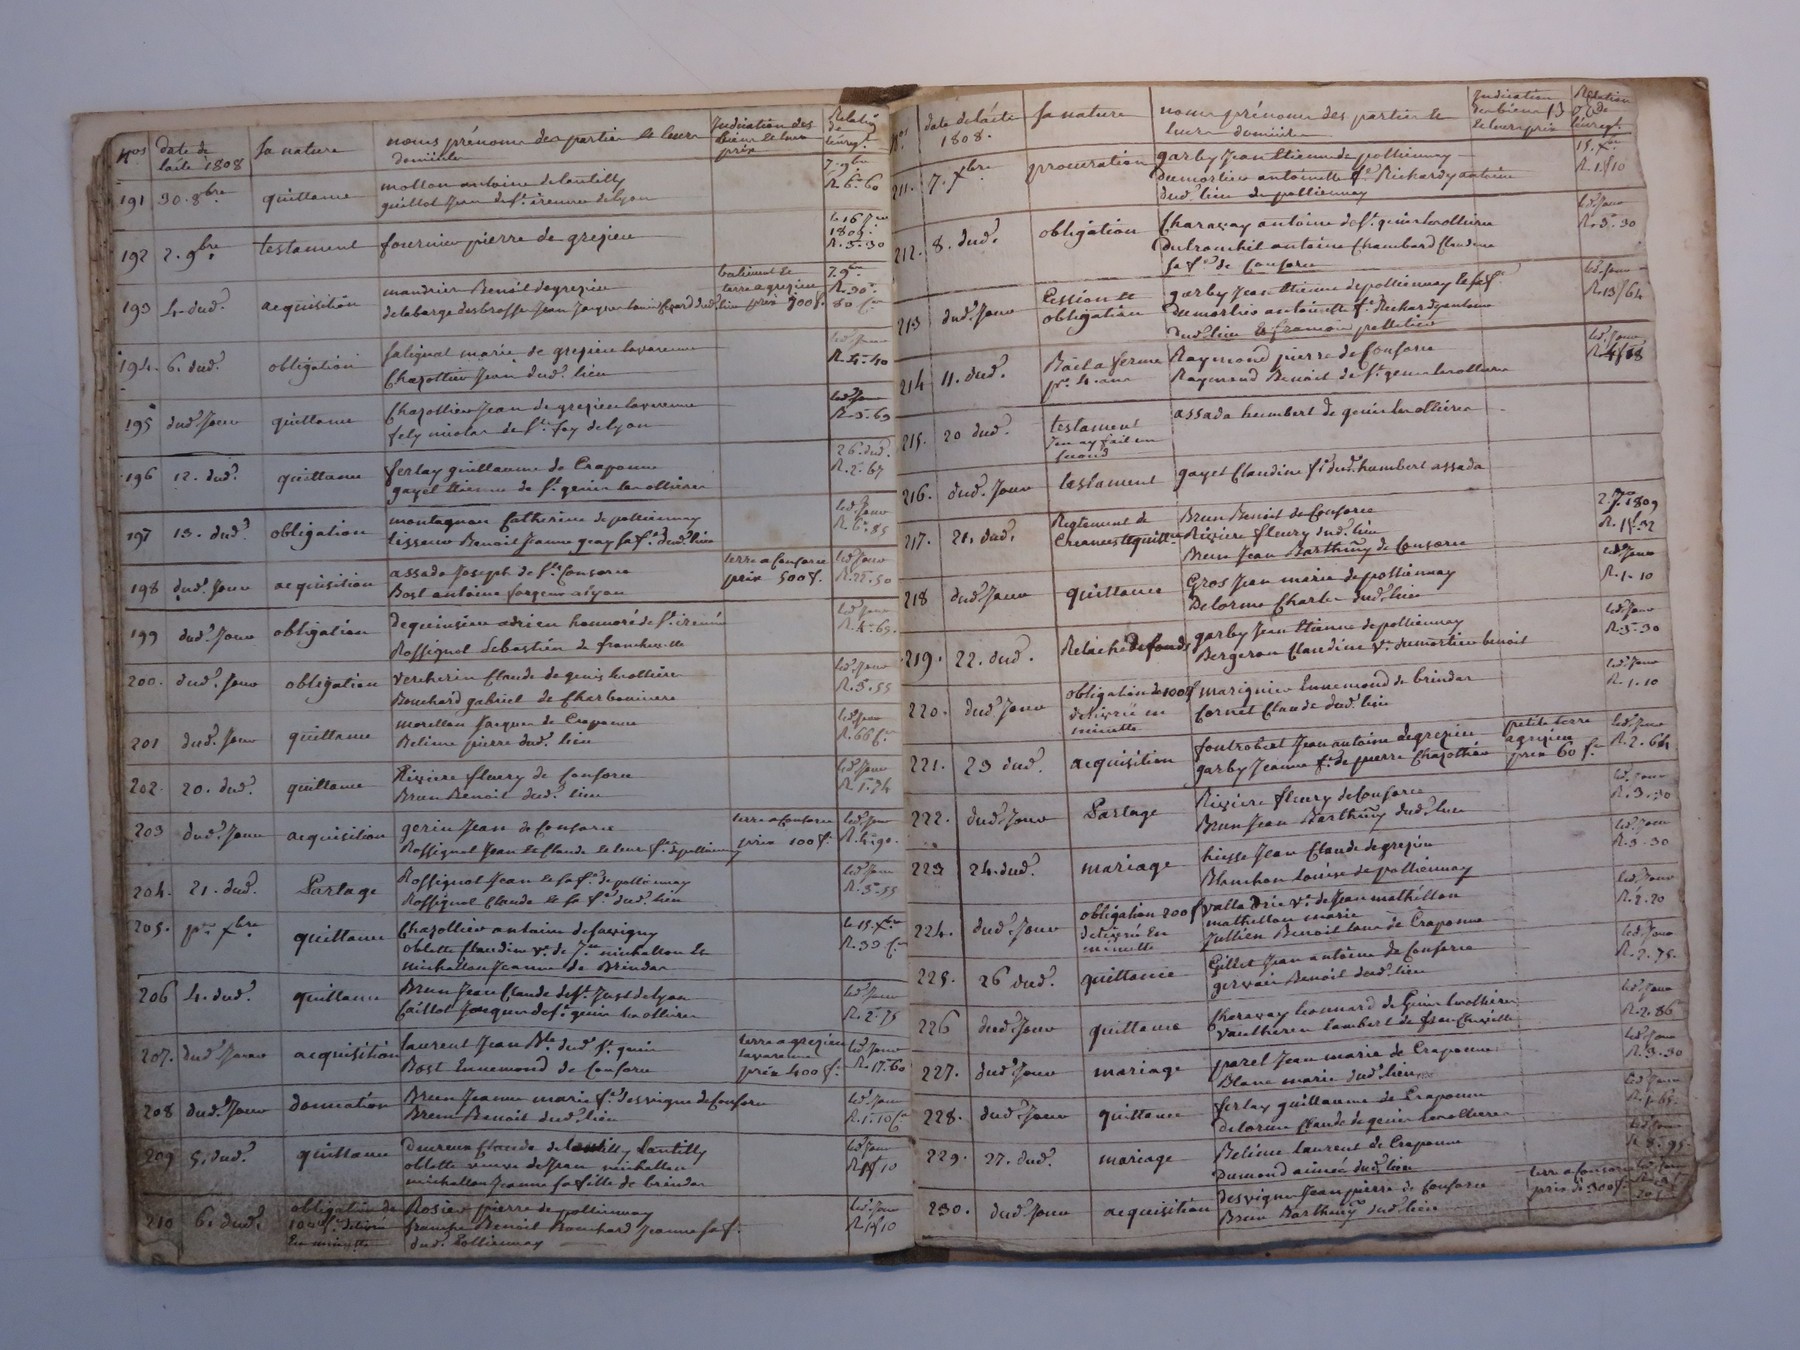 nos date de l'acte 1808 sa nature noms prénoms des parties et leurs domicile Indication des biens et leur prix Relation de l'enregt.
191 30. 8bre quittance mollon antoine de lentilly 7. 9bre
guillot Jean de St. irenné de lyon R. 6-60
192 2. 9bre testament fournier pierre de grezieu le 16 1809. R. 3-30
193 4. dud. acquisition mandrier Benoit de grezieu batiment et terre a grezieu 7. 9bre
prix 900 f. R. 30-80 c
194. 6. dud. obligation salignat marie de grezieu lavarenne led. Jour
Chazottier Jean dud. lieu R. 4-40
195 dud. Jour quittance Chazottier Jean de grezieu lavarenne led. Jour
fely nicolas de Ste. foy de lyon R. 3-69
196 12. dud. quittance ferlay guillaume de Craponne 26. dud.
gayet étienne de St. genis les ollieres R. 2-67
197 13. dud. obligation montagnon Catherine de pollionnay led. Jour
tisseur Benoit Jeanne gray sa fe. dud. lieu R. 85
198 dud. Jour acquisition assada Joseph de Ste. Consorce terre a Consorce led. Jour
Bost antoine prix 500 f. R. 22-50
199 dud. Jour obligation dequinsieu adrien honnoré de St. irenné led. Jour
Rossignol Sebastien de francheville R. 4-69.
200. dud. Jour obligation vercherin Claude de genis les ollieres led. Jour
Bouchard gabriel de Charbonniere R. 5-55
201 dud. Jour quittance morellon Jacques de Craponne led. Jour
Belisme pierre dud. lieu R. 66 c
202. 20. dud. quittance Riviere fleury de Consorce led. Jour
Brun Benoit dud. lieu R. 1-74
203 dud. Jour acquisition gerin Jean de Consorce terre a Consorce led. Jour
Rossignol Jean et Claude et leur fe. de pollionnay prix 100 f. R. 4-90.
204. 21. dud. Partage Rossignol Jean et sa fe. de pollionnay led. Jour
Rossignol Claude et sa fe. dud. lieu R. 5-55
205. per. xbre quittance Chazottier antoine de savigny le 15. xbre
oblette Claudine ve. de Jn. michallon et R. 33 c
michallon Jeanne de Brindas
206 4. dud. quittance Brun Jean Claude de St. Just de lyon led. Jour
Caillot Jacques de St. genis les ollieres R. 2-75
207. dud. Jour acquisition laurent Jean Bte. dud. St. genis terre a grezieu lavarenne led. Jour
Bost Ennemond de Consorce prix 400 f. R. 17-60
208 dud. Jour donnation Brun Jeanne marie fe. desvigne de Consorce led. Jour
Brun Benoit dud. lieu R. 1-10 c
209 5. dud. quittance Claude de Lentilly led. Jour
oblette veuve de Jean michallon R. 1/10
michallon Jeanne sa fille de brindas
210 6. dud. obligation de Rosier pierre de pollionnay led. Jour
100 f. delivré Benoit Bouchard Jeanne sa f. R. 1/10
En minutte dud. Pollionnay
nos date de l'acte 1808. sa nature noms prénoms des parties et leurs domicile Indication des biens et leur prix 13 Relation de l'enregt.
211. 7. xbre procuration garby Jean Etienne de pollionnay 15. xbre
dumortier antoinette fe. Richard antoine R. 1/10
dud. lieu de pollionnay
212. 8. dud. obligation Charavay antoine de St. genis les ollieres led. Jour
dutrouhil antoine Chambard Claudine R. 3-30
sa fe. de Consorce
213 dud. Jour Cession et garby Jean Etienne de pollionnay et sa fe. led. Jour
obligation dumortier antoinette fe. Richard antoine R. 13/64
dud. lieu et françois pelletier
214 11. dud. Bail a ferme Raymond pierre de Consorce led. Jour
pr. 4. ans Raymond Benoit de St. genis les ollieres
215. 20 dud. testament assada humbert de genis les ollieres
J'en ay fait un
second
216. dud. Jour testament gayet Claudine fe. dud. humbert assada
217. 21. dud. Reglement de Brun Benoit de Consorce 1809
Creances et quittce Riviere fleury dud. lieu
Brun Jean Barthmy de Consorce
218 dud. Jour quittance Gros Jean marie de pollionnay led. Jour
Delorme Charles dud. lieu R. 1-10
219. 22. dud. Relache de fonds garby Jean Etienne de pollionnay led. Jour
Bergeron Claudine ve. dumortier benoit R. 3-30
220. dud. Jour obligation de 100 f marignier Ennemond de brindas led. Jour
delivré en Cornet Claude dud. lieu R. 1-10
minutte
221. 23 dud. acquisition fontrobert Jean antoine de grezieu petite terre a grezieu led. Jour
garby Jeanne fe. de pierre Chazottier prix 60 f. R. 2-64
222. dud. Jour Partage Riviere fleury de Consorce led. Jour
Brun Jean Barthmy dud. lieu R. 3-30
223 24. dud. mariage Jean Claude de grezieu led. Jour
Blanchon louise de pollionnay R. 3-30
224. dud. Jour obligation 200 f ve. de Jean mathellon led. Jour
delivré En mathellon marie R. 2-20
minutte Jullien Benoit tous de Craponne
225. 26 dud. quittance Gillet Jean antoine de Consorce led. Jour
gervais Benoit dud. lieu R. 2-75.
226 dud. Jour quittance Charavay leonnard de Genis les ollieres led. Jour
lambert de francheville R. 2-86
227. dud. Jour mariage parel Jean marie de Craponne led. Jour
Blanc marie dud. lieu R. 3-30
228. dud. Jour quittance ferlay guillaume de Craponne led. Jour
delorme Claude de genis les ollieres R. 1-65.
229. 27. dud. mariage Belisme laurent de Craponne led. Jour
Dumond aimée dud. lieu R. 8-95.
230. dud. Jour acquisition desvigne Jean pierre de Consorce terre a Consorce led. Jour
Brun Barthmy dud. lieu prix de 300 f.